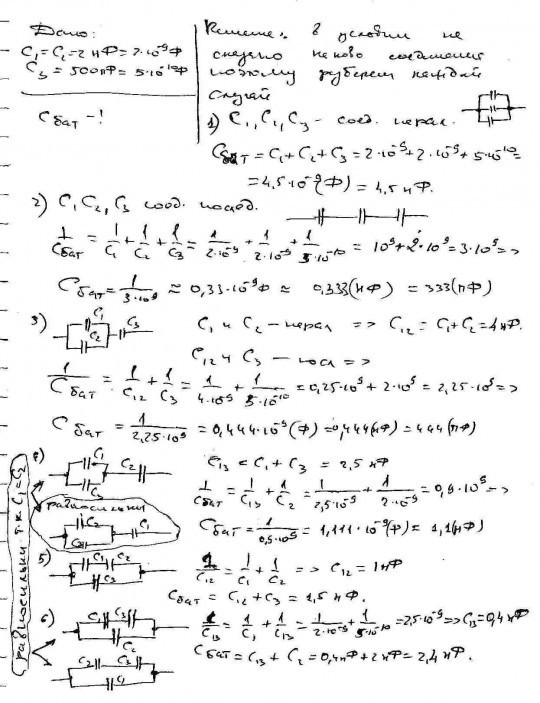 Дано:
C₁ = C₂ = 2 нФ = 2·10⁻⁹Ф
C₃ = 500пФ = 5·10⁻¹⁰Ф
C бат – !
Решение: в условии не
сказано какого соединения
поэтому разберем каждый
случай
1) C₁, C₂, C₃ – соед. парал.
Cбат = C₁ + C₂ + C₃ = 2·10⁻⁹ + 2·10⁻⁹ + 5·10⁻¹⁰ =
= 4,5·10⁻⁹(Ф) = 4,5 нФ.
2) C₁ C₂, C₃ соод. послед.
1/Cбат = 1/C₁ + 1/C₂ + 1/C₃ = 1/2·10⁻⁹ + 1/2·10⁻⁹ + 1/5·10⁻¹⁰ = 10⁹ + 2·10⁹ = 3·10⁹ =>
Cбат = 1/3·10⁹ ≈ 0,33·10⁻⁹Ф ≈ 0,333(нФ) = 333(пФ)
3) C₁ C₂ C₃ C₁ и C₂ – парал => C₁₂ = C₁ + C₂ = 4 нФ.
C₁₂ и C₃ – посл =>
1/Cбат = 1/C₁₂ + 1/C₃ = 1/4·10⁻⁹ + 1/5·10⁻¹⁰ = 0,25·10⁹ + 2·10⁹ = 2,25·10⁹ =>
Cбат = 1/2,25·10⁹ = 0,444·10⁻⁹(Ф) = 0,444(нФ) = 444(пФ)
4) C₁ C₃ C₂ C₁₃ = C₁ + C₃ = 2,5 нФ
1/Cбат = 1/C₁₃ + 1/C₂ = 1/2,5·10⁻⁹ + 1/2·10⁻⁹ = 0,9·10⁹ =>
равносильны
C₂ C₃ C₁
Cбат = 1/0,9·10⁹ = 1,111·10⁻⁹(Ф) = 1,1(нФ)
5) C₁ C₂ C₃ 1/C₁₂ = 1/C₁ + 1/C₂ => C₁₂ = 1 нФ
Cбат = C₁₂ + C₃ = 1,5 нФ.
6) C₁ C₃ C₂ 1/C₁₃ = 1/C₁ + 1/C₁₃ = 1/2·10⁻⁹ + 1/5·10⁻¹⁰ = 2,5·10⁹ => C₁₃ = 0,4 нФ
C₂ C₃ C₁ Cбат = C₁₃ + C₂ = 0,4 нФ + 2 нФ = 2,4 нФ.
(равносильны т.к C₁ = C₂)